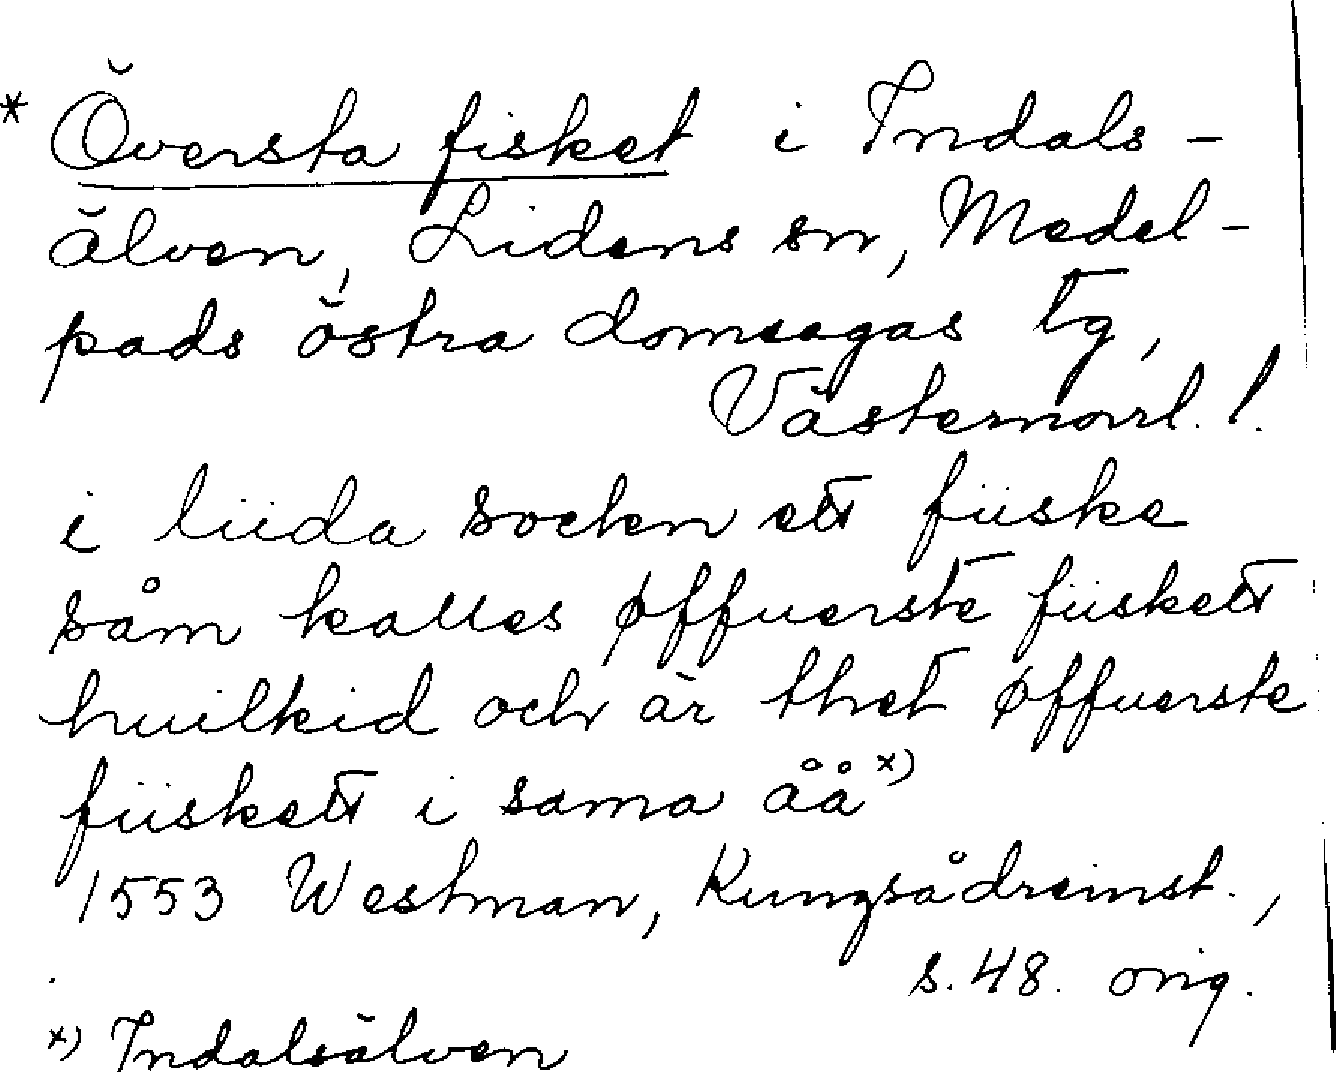 * Översta fisket i Indals-
älven, Lidens sn, Medel-
pads östra domsagas tg,
Västernorrl. l.
i liida sockn ett fiiske
såm kalles øffuerste fiiskett
huilkid och är thet øffuerste
fiiskett i sama åå x)
1553 Westman, Kungsådreinst.,
s. 48. orig.
x) Indalsälven